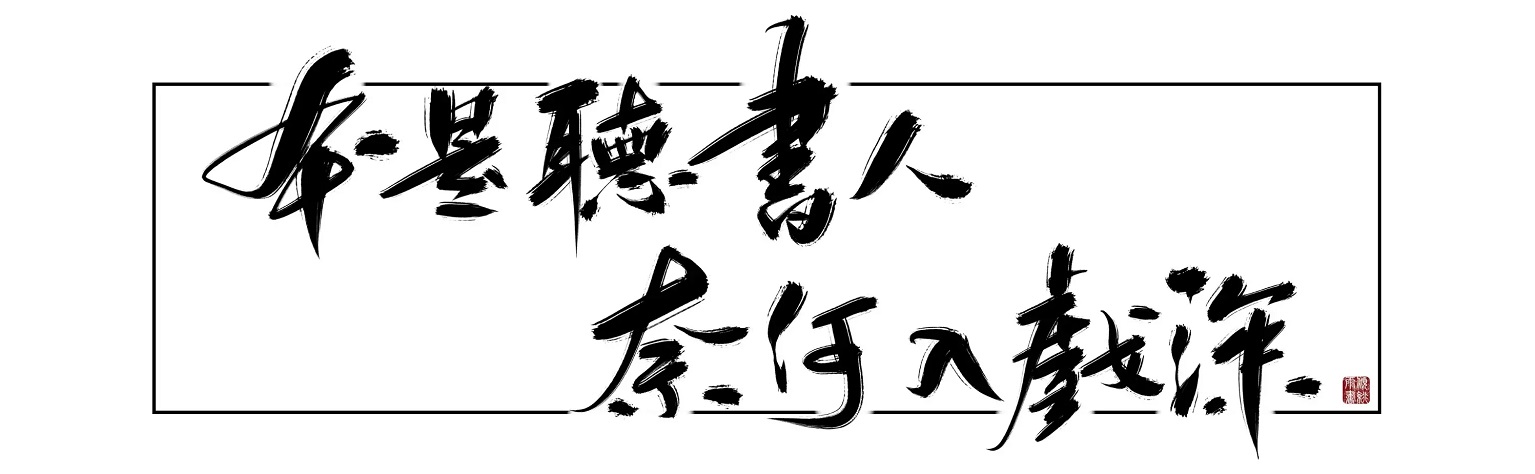 本是聽書人
奈何入戲深